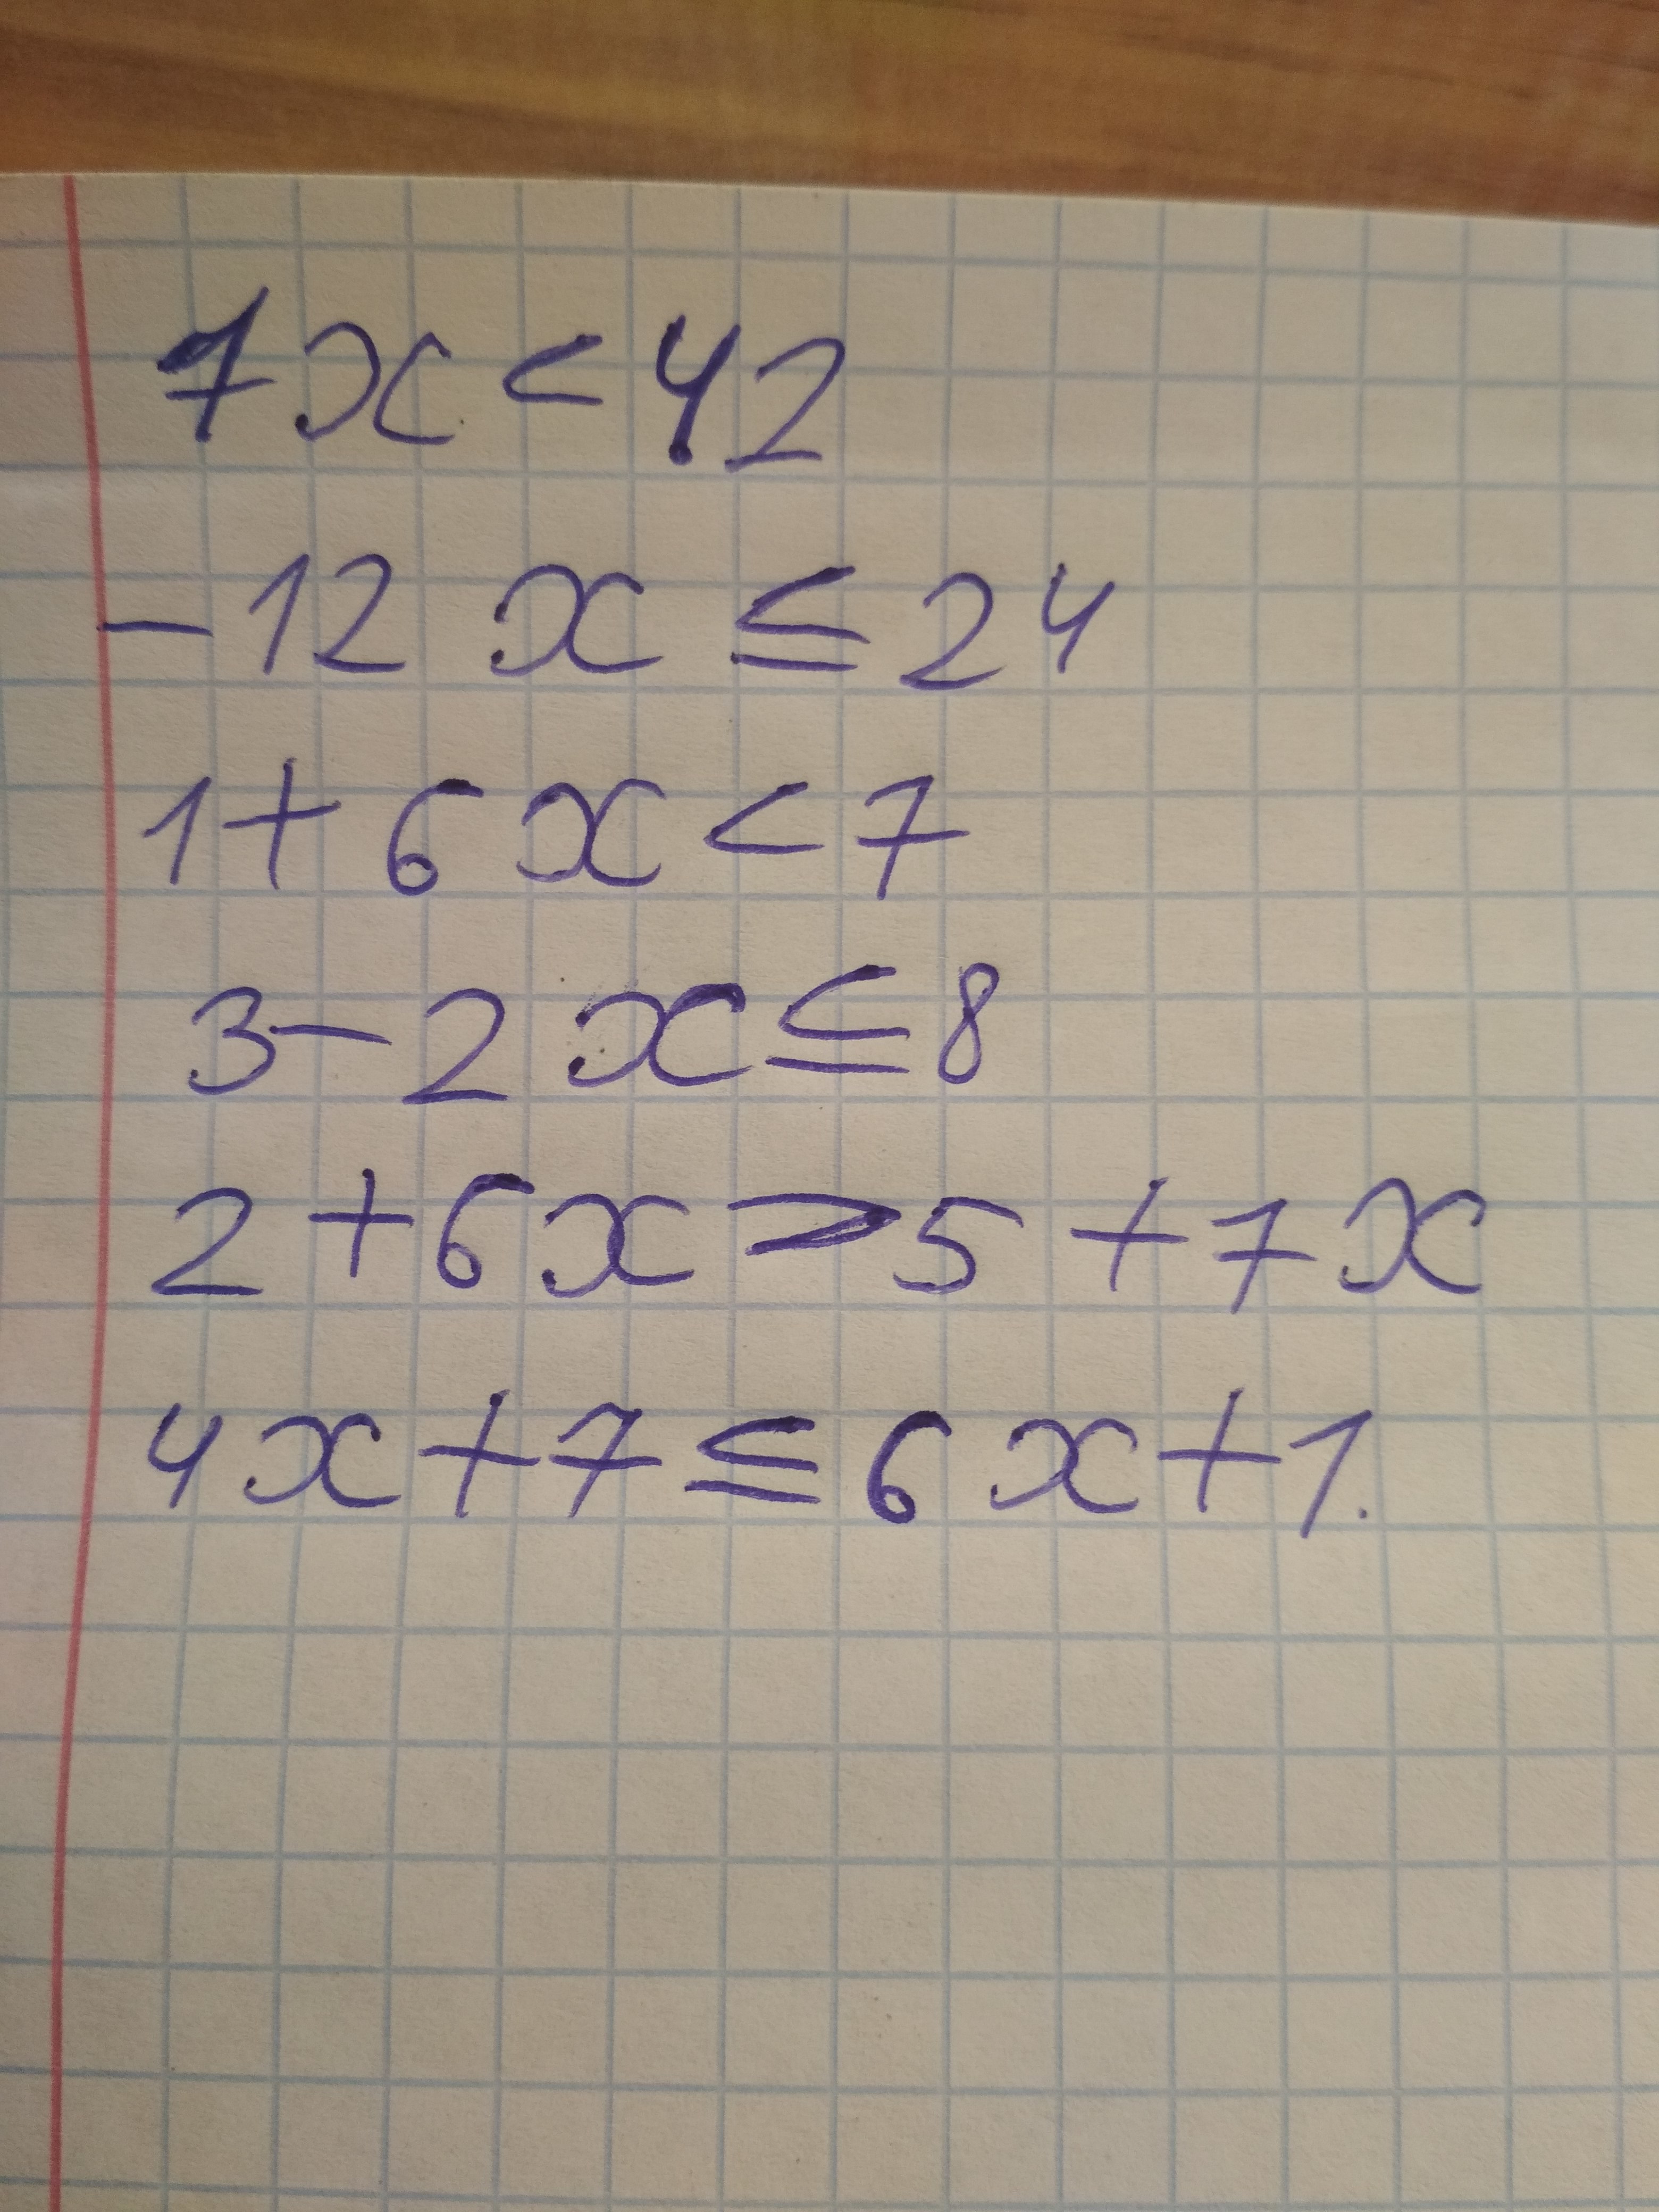 7x < 42
-12x ≤ 24
1 + 6x < 7
3 - 2x ≤ 8
2 + 6x > 5 + 7x
4x + 7 ≤ 6x + 1.